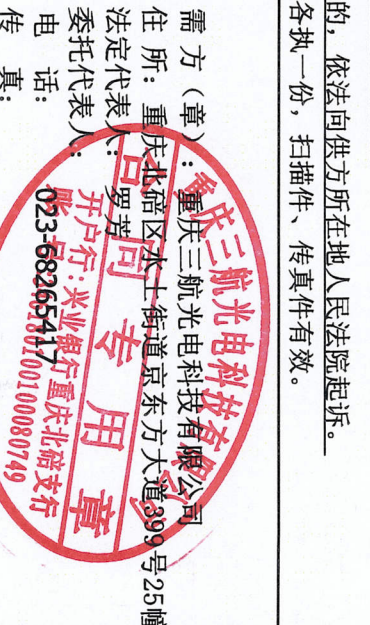 的，依法向供方所在地人民法院起诉。
各执一份，扫描件、传真件有效。
需 方（章）：重庆三航光电科技有限公司
住 所：重庆北碚区水土街道京东方大道399号25幢
法定代表人：罗芳
委托代表人：
电 话：023-68265417
传 真：
重庆三航光电科技有限公司
合同专用章
开户行：兴业银行重庆北碚支行
账号：
0100100080749